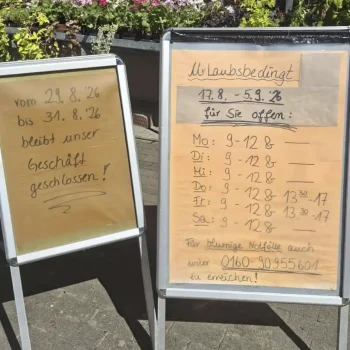 vom 29.8.'26
bis 31.8.'26
bleibt unser
Geschäft
geschlossen!
Urlaubsbedingt
17.8. - 5.9.'26
für Sie offen:
Mo: 9-12 &
Di: 9-12 &
Mi: 9-12 &
Do: 9-12 & 13³⁰-17
Fr: 9-12 & 13³⁰-17
Sa: 9-12 &
Für blumige Notfälle auch
unter 0160-90955601
zu erreichen!